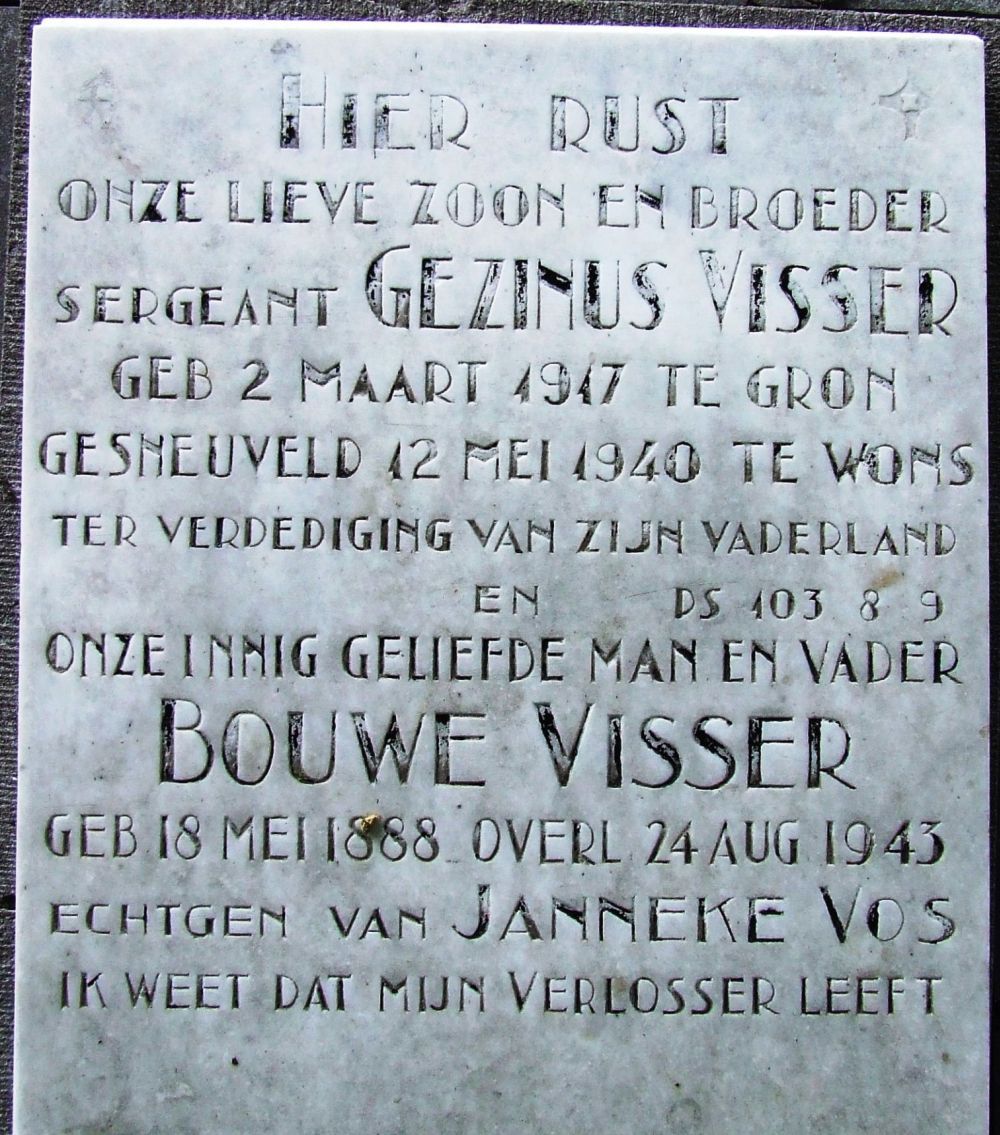 HIER RUST
ONZE LIEVE ZOON EN BROEDER
SERGEANT GEZINUS VISSER
GEB 2 MAART 1917 TE GRON
GESNEUVELD 12 MEI 1940 TE WONS
TER VERDEDIGING VAN ZIJN VADERLAND
EN DS 103 8 9
ONZE INNIG GELIEFDE MAN EN VADER
BOUWE VISSER
GEB 18 MEI 1888 OVERL 24 AUG 1943
ECHTGEN VAN JANNEKE VOS
IK WEET DAT MIJN VERLOSSER LEEFT